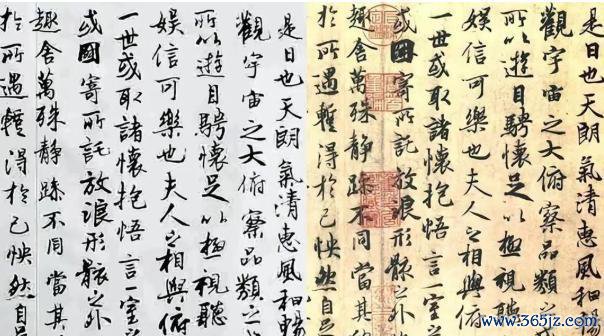 是日也天朗氣清惠風和暢
觀宇宙之大俯察品類之
所以遊目騁懷足以極視聽
娛信可樂也夫人之相與俯
一世或取諸懷抱悟言一室
或因寄所託放浪形骸之外
趣舍萬殊靜躁不同當其
於所遇蹔得於己怏然自
是日也天朗氣清惠風和
觀宇宙之大俯察品類之
所以遊目騁懷足以極視聽
娛信可樂也夫人之相與俯
一世或取諸懷抱悟言一室
或因寄所託放浪形骸之外
趣舍萬殊靜躁不同當其
於所遇蹔得於己怏然自
www.365jz.com